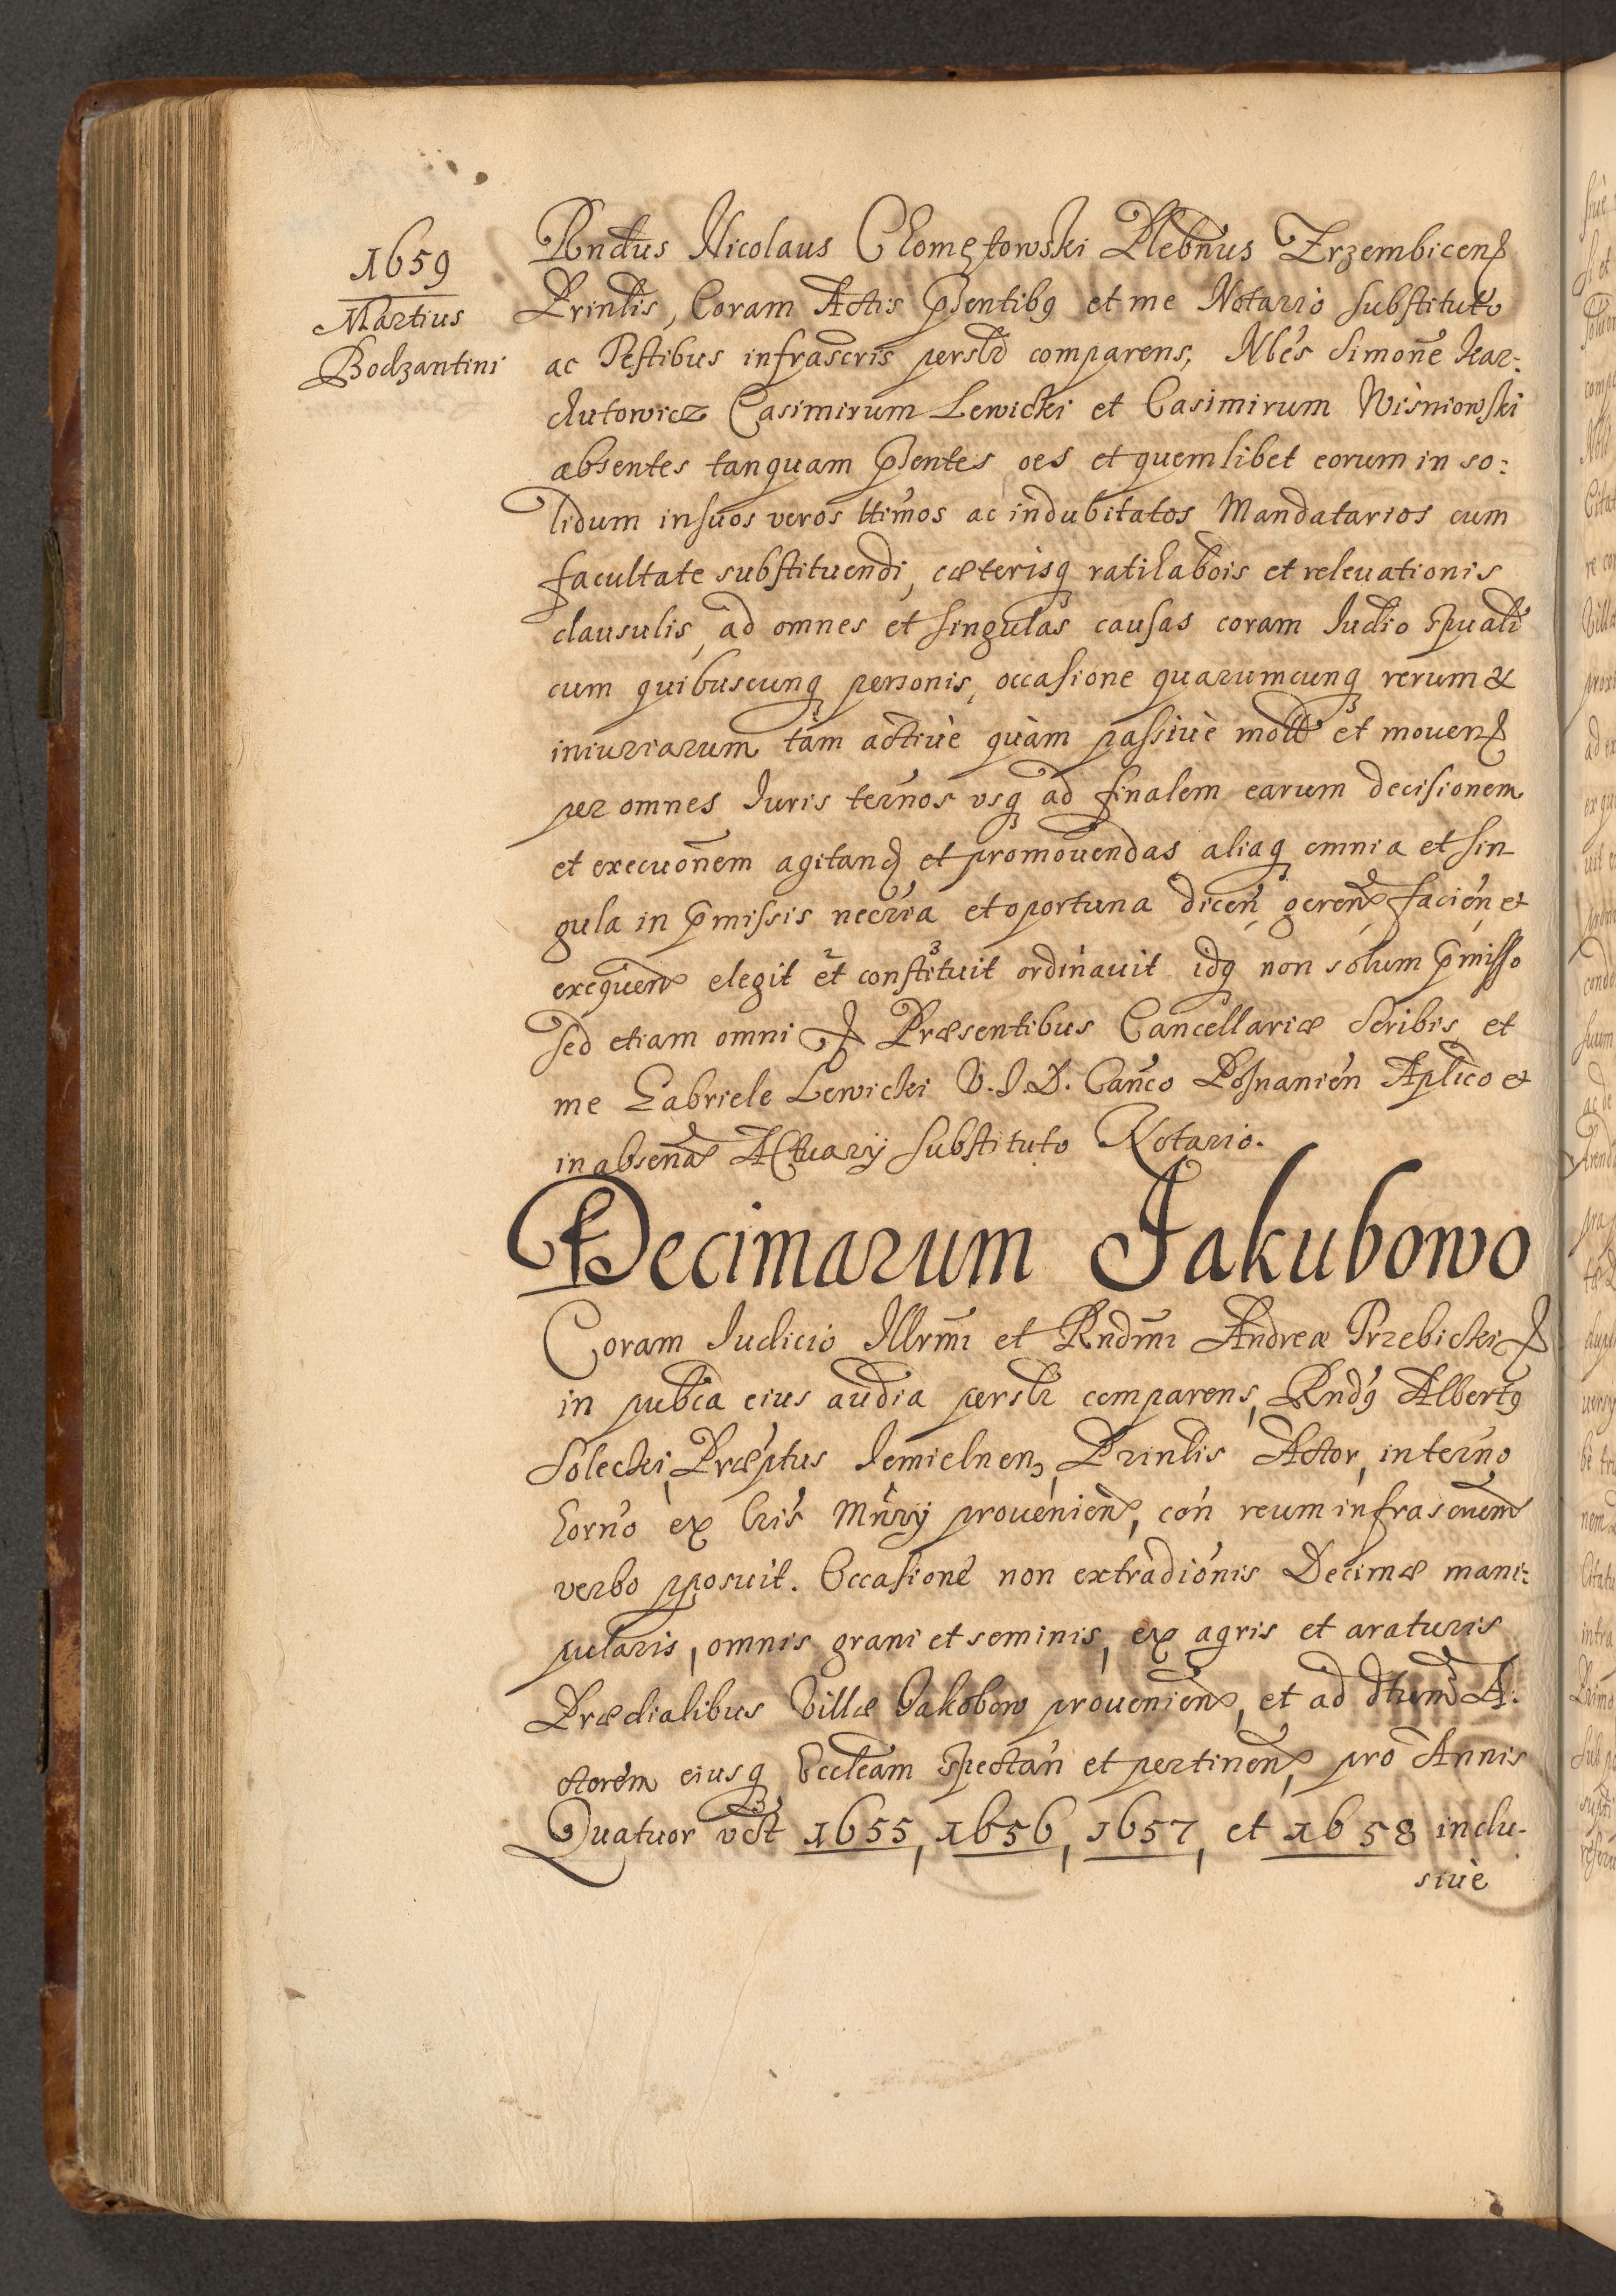 1659
Martius
Bodzantini
Rndus Nicolaus Chomętowski Plebnus Trzembicen
Prinlis, Coram Actis Pn̄tibq et me Notario substituto
ac Testibus infrascris persl̄r comparens, Nbe͂s Simone͂ Kar:
chutowicz Casimirum Lewicki et Casimirum Wiśniowski
absentes tanquam Psentes oes et quemlibet eorum in so:
lidum in suos veros ltimos ac indubitatos Mandatarios cum
facultate substituendi, cæterisq ratihabois et releuationis
clausulis, ad omnes et singulas causas coram Iudio spuali
cum quibuscunq personis, occasione quarumcunq rerum &
iniuriarum tàm actiuè quàm passiuè mott et mouen
per omnes Iuris ternos vsq ad finalem earum decisionem
et execuonem agitand et promouendas aliaq omnia et sin-
gula in Pmissis necria et oportuna dicen geren facien et
exequen elegit et constituit ordinauit idq non solum Pmisso
sed etiam omni Præsentibus Cancellariæ Scribis et
me Gabriele Lewicki V.I.D. Canco Posnanien Aplico et
in absena Actuarij substituto Notario.
Decimarum Jakubowo
Coram Iudicio Illrmi et Rndmi Andreæ Trzebicki
in publca eius audia persl̄r comparens, Rndq Albertq
Solecki, Præptus Iemielnen, Prinlis Actor, in terno
horno ex lris Mnrij prouenien, con reum infrascrnem
verbo pposuit. Occasione non extradionis Decimæ mani:
pularis, omnis grani et seminis, ex agris et araturis
Prædialibus Villæ Jakobow prouenien, et ad dtum A:
ctorem eiusq Eccleam spectan et pertinen, pro Annis
Quatuor vdlt 1655, 1656, 1657, et 1658 inclu-
siuè